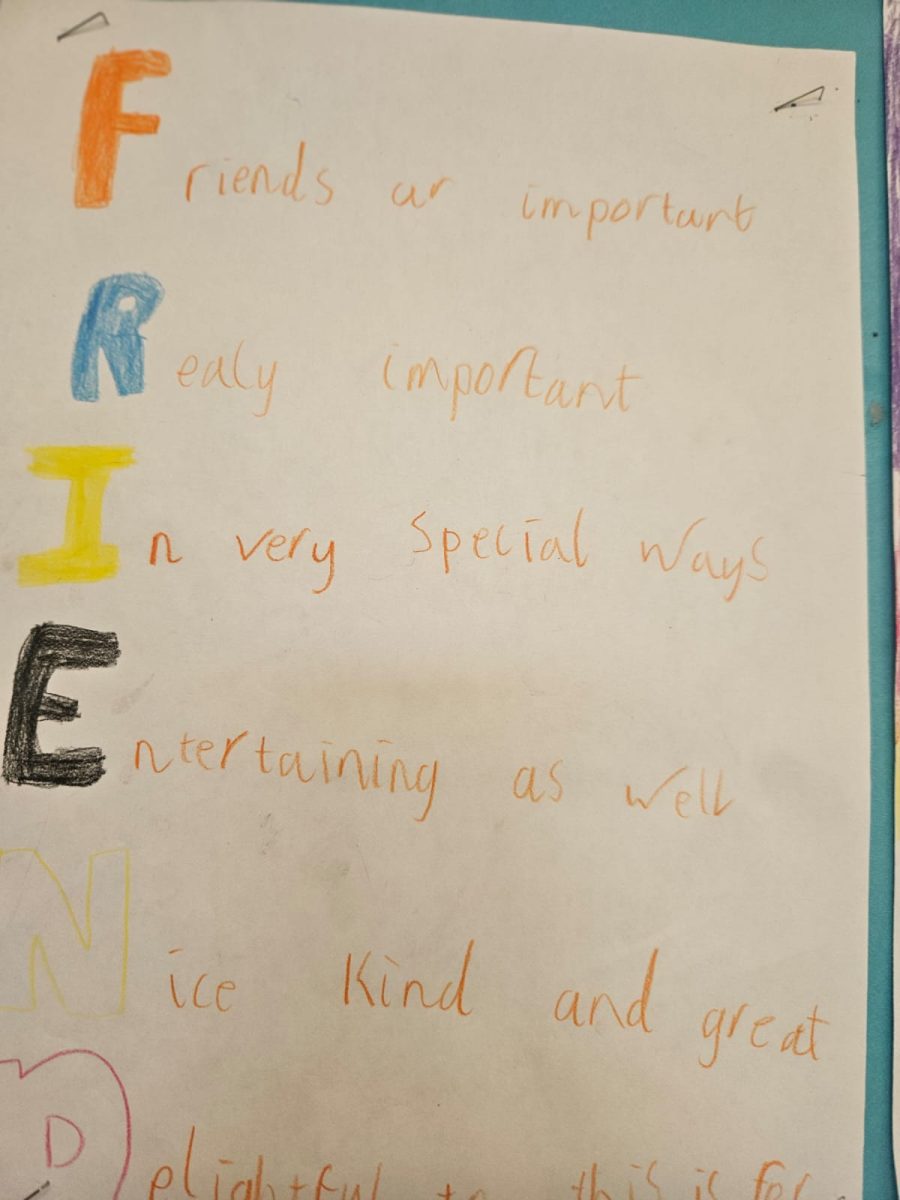 Friends ar important
Realy important
In very special ways
Entertaining as well
Nice kind and great
Delightful to this is for